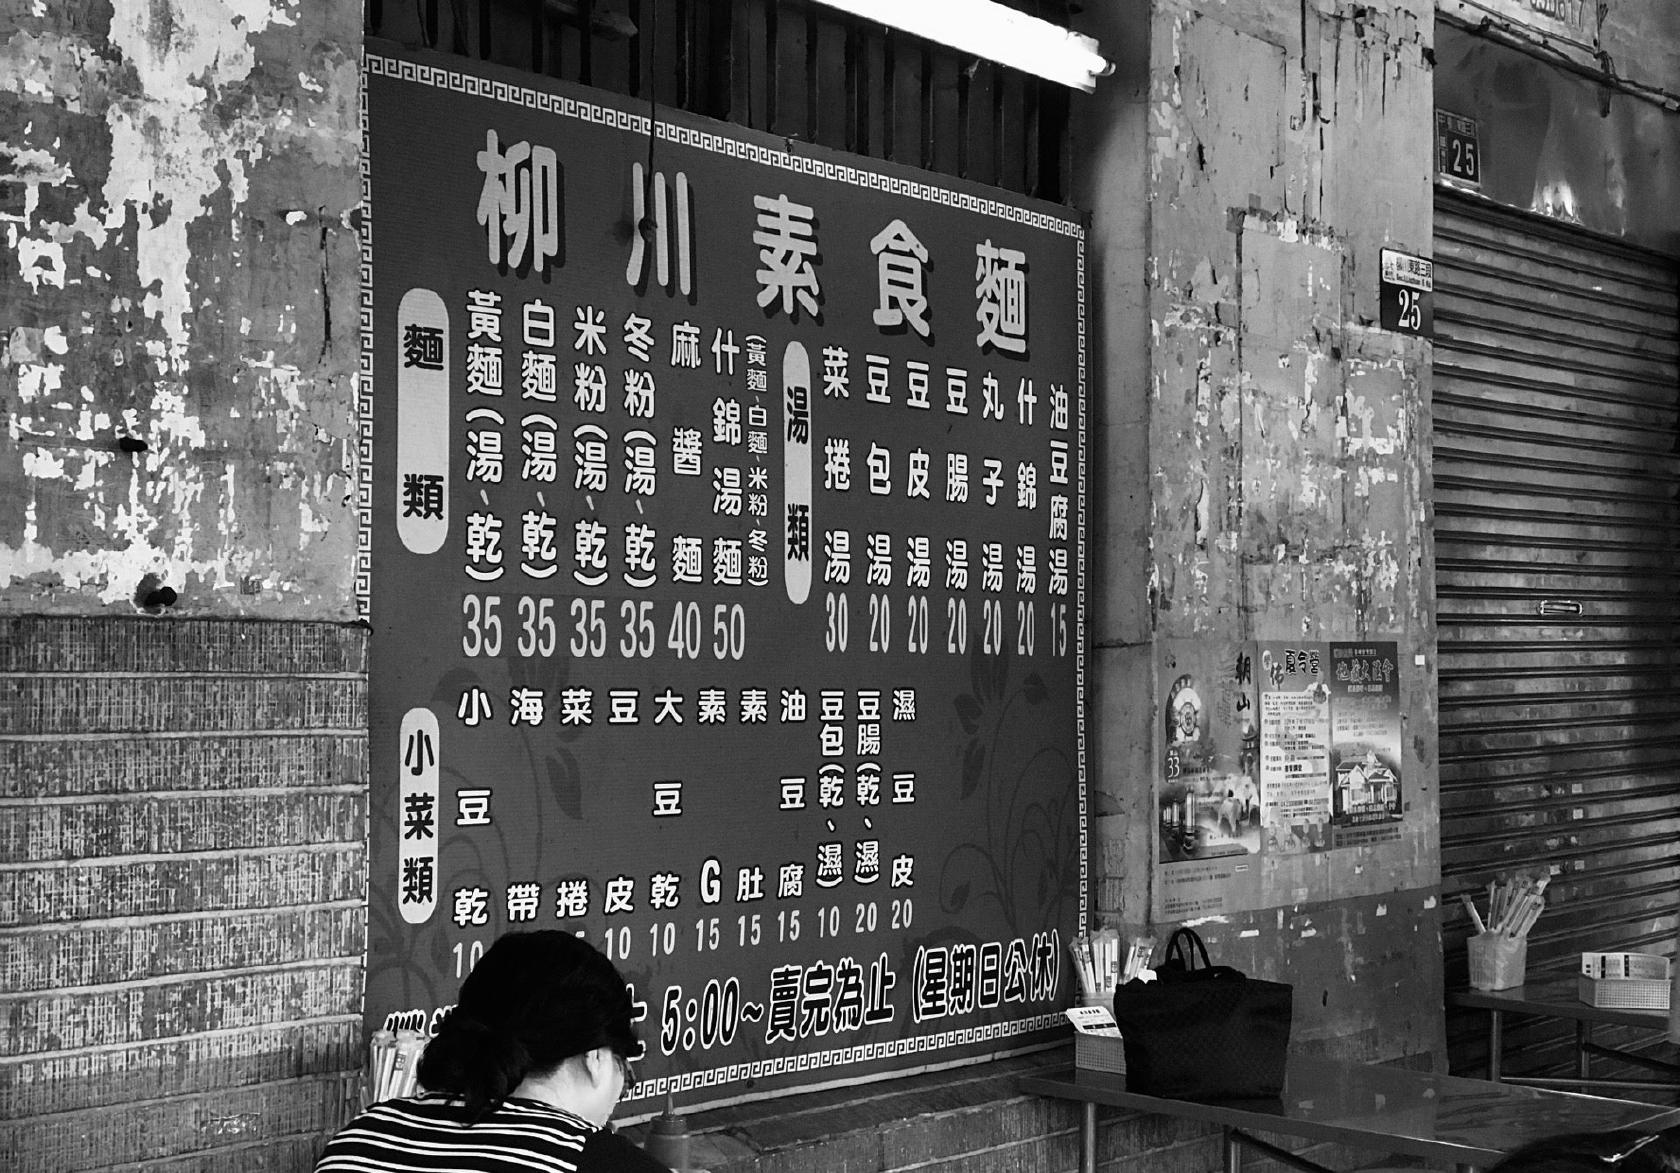 柳川素食麵
麵類
黃麵(湯、乾) 35
白麵(湯、乾) 35
米粉(湯、乾) 35
冬粉(湯、乾) 35
麻醬麵 40
什錦湯麵 50
(黃麵、白麵、米粉、冬粉)
湯類
菜捲湯 30
豆包湯 20
豆皮湯 20
豆腸湯 20
丸子湯 20
什錦湯 20
油豆腐湯 15
小菜類
小豆乾 10
海帶
菜捲
豆皮 10
大豆乾 10
素G 15
素肚 15
油豆腐 15
豆包(乾、濕) 10
豆腸(乾、濕) 20
濕豆皮 20
5:00~賣完為止(星期日公休)
25
柳川東路三段
25
朝山
33
夏令營